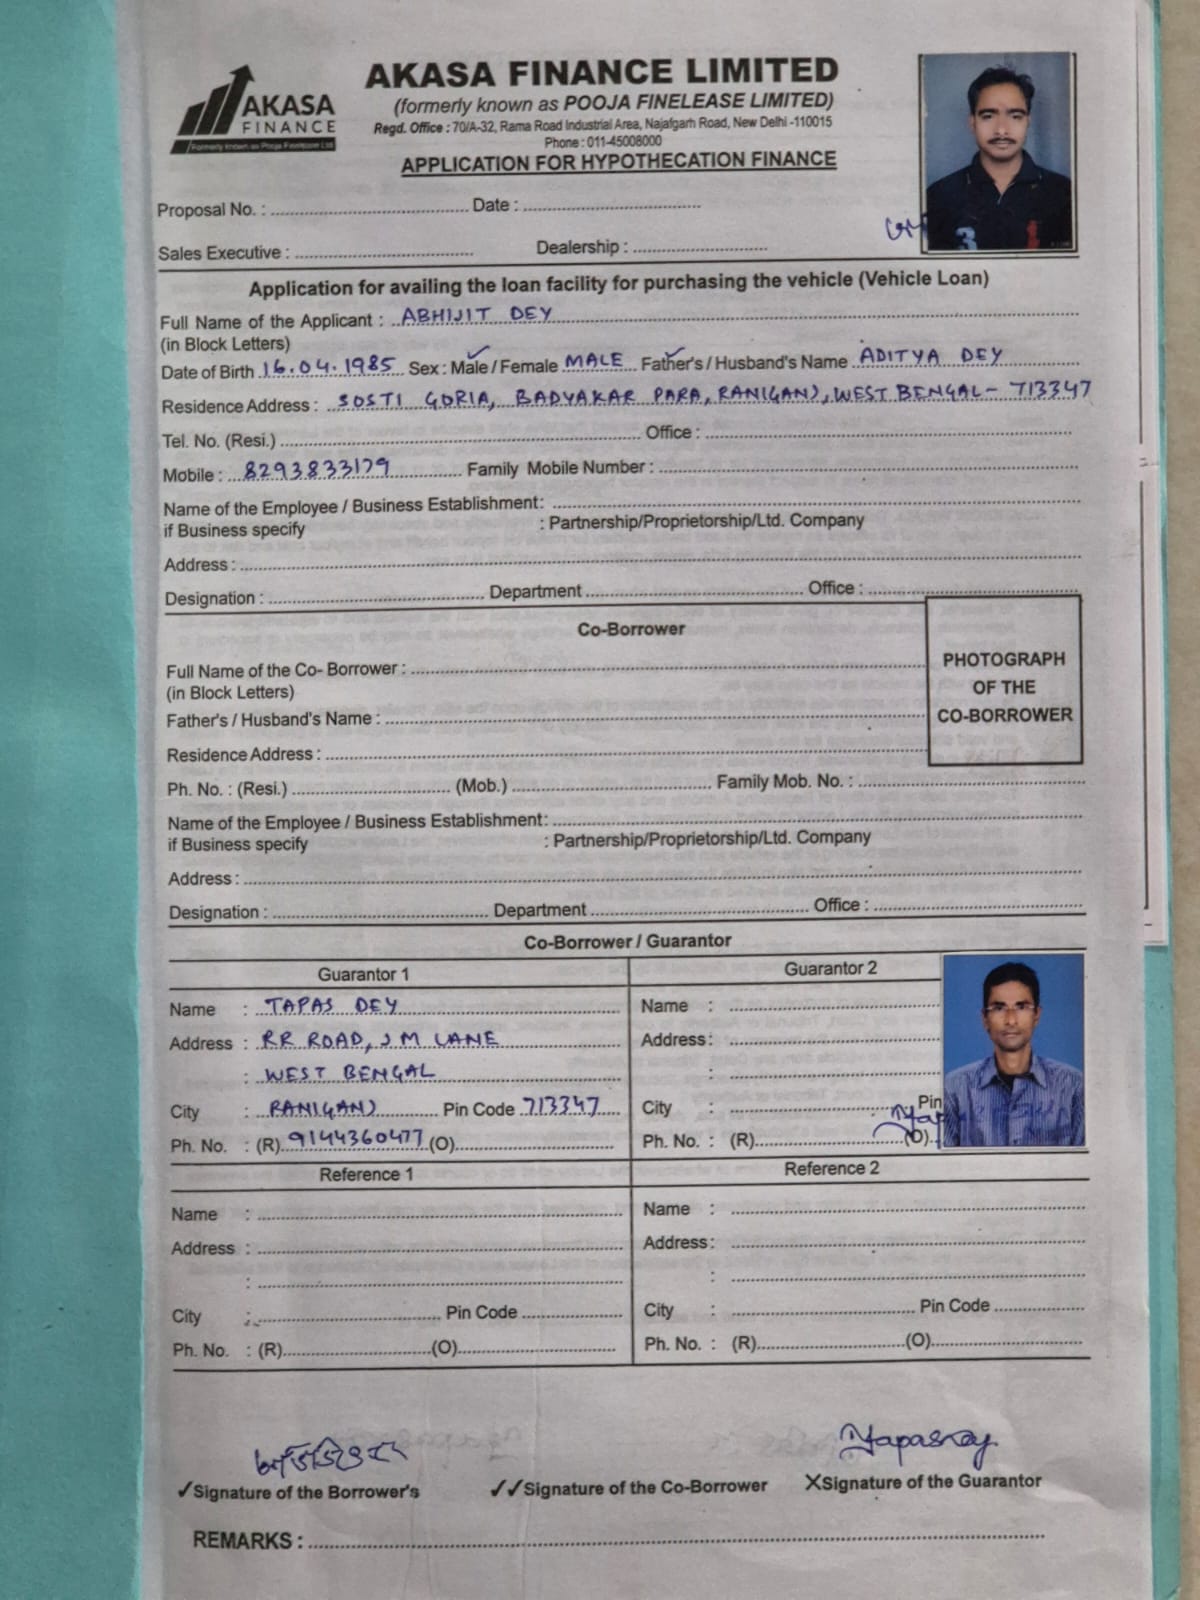 AKASA
FINANCE
Formerly known as Pooja Finelease Ltd.
AKASA FINANCE LIMITED
(formerly known as POOJA FINELEASE LIMITED)
Regd. Office : 70/A-32, Rama Road Industrial Area, Najafgarh Road, New Delhi -110015
Phone : 011-45008000
APPLICATION FOR HYPOTHECATION FINANCE
Proposal No. : Date :
Sales Executive : Dealership :
Application for availing the loan facility for purchasing the vehicle (Vehicle Loan)
Full Name of the Applicant : ABHIJIT DEY
(in Block Letters)
Date of Birth 16.04.1985 Sex : Male / Female MALE Father's / Husband's Name ADITYA DEY
Residence Address : SOSTI GORIA, BADYAKAR PARA, RANIGANJ, WEST BENGAL - 713347
Tel. No. (Resi.) Office :
Mobile : 8293833179 Family Mobile Number :
Name of the Employee / Business Establishment:
if Business specify : Partnership/Proprietorship/Ltd. Company
Address :
Designation : Department Office :
Co-Borrower
PHOTOGRAPH
OF THE
CO-BORROWER
Full Name of the Co- Borrower :
(in Block Letters)
Father's / Husband's Name :
Residence Address :
Ph. No. : (Resi.) (Mob.) Family Mob. No. :
Name of the Employee / Business Establishment:
if Business specify : Partnership/Proprietorship/Ltd. Company
Address :
Designation : Department Office :
Co-Borrower / Guarantor
Guarantor 1 Guarantor 2
Name : TAPAS DEY Name :
Address : RR ROAD, J M LANE Address :
: WEST BENGAL :
City : RANIGANJ Pin Code 713347 City : Pin
Ph. No. : (R) 9144360477 (O) Ph. No. : (R) (O)
Reference 1 Reference 2
Name : Name :
Address : Address :
: :
City : Pin Code City : Pin Code
Ph. No. : (R) (O) Ph. No. : (R) (O)
✓Signature of the Borrower's ✓✓Signature of the Co-Borrower XSignature of the Guarantor
REMARKS :